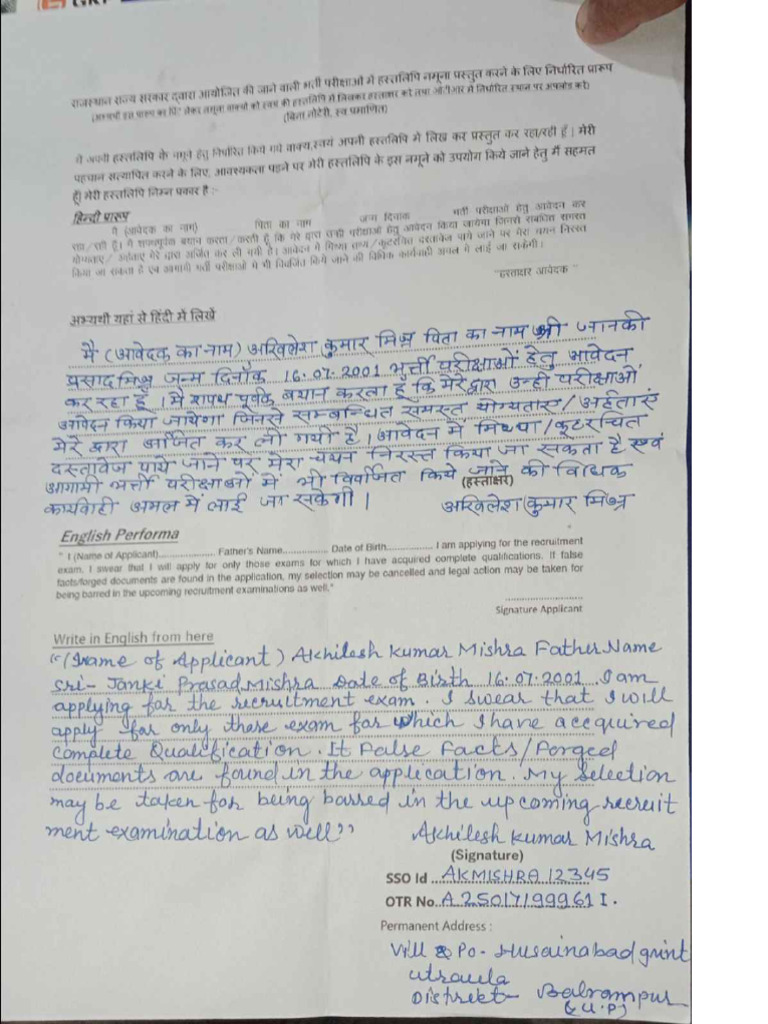 राजस्थान राज्य सरकार द्वारा आयोजित की जाने वाली भर्ती परीक्षाओं में हस्तलिपि नमूना प्रस्तुत करने के लिए निर्धारित प्रारूप
(बिना नोटेरी, स्व प्रमाणित)
मैं अपनी हस्तलिपि के नमूने हेतु निर्धारित किये गये वाक्य,स्वयं अपनी हस्तलिपि में लिख कर प्रस्तुत कर रहा/रही हूँ। मेरी
पहचान सत्यापित करने के लिए, आवश्यकता पड़ने पर मेरी हस्तलिपि के इस नमूने को उपयोग किये जाने हेतु मैं सहमत
हूँ। मेरी हस्तलिपि निम्न प्रकार है :-
हिन्दी प्रारूप
मैं (आवेदक का नाम) पिता का नाम जन्म दिनांक भर्ती परीक्षाओं हेतु आवेदन कर
रहा/रही हूँ। मैं शपथपूर्वक बयान करता/करती हूँ कि मेरे द्वारा उन्ही परीक्षाओं हेतु आवेदन किया जायेगा जिनसे संबंधित समस्त
योग्यताएं/अर्हताएं मेरे द्वारा अर्जित कर ली गयी है। आवेदन में मिथ्या तथ्य/कूटरचित दस्तावेज पाये जाने पर मेरा चयन निरस्त
किया जा सकता है एवं आगामी भर्ती परीक्षाओं में भी विवर्जित किये जाने की विधिक कार्यवाही अमल में लाई जा सकेगी।
"हस्ताक्षर आवेदक"
अभ्यर्थी यहां से हिंदी में लिखें
मैं (आवेदक का नाम) अखिलेश कुमार मिश्र पिता का नाम श्री जानकी
प्रसाद मिश्र जन्म दिनाँक 16.07.2001 भर्त्ती परीक्षाओं हेतु आवेदन
कर रहा हूँ। मैं शपथ पूर्वक बयान करता हूँ कि मेरे द्वारा उन्ही परीक्षाओं
आवेदन किया जायेगा जिनसे सम्बन्धित समस्त योग्यताएं/अर्हताएं
मेरे द्वारा अर्जित कर ली गयी है। आवेदन में मिथ्या/कूटरचित
दस्तावेज पाये जाने पर मेरा चयन निरस्त किया जा सकता है एवं
आगामी भर्त्ती परीक्षाओं में भी विवर्जित किये जाने की विधिक
(हस्ताक्षर)
कार्यवाही अमल में लाई जा सकेगी। अखिलेश कुमार मिश्र
English Performa
" I (Name of Applicant)..................... Father's Name................ Date of Birth................ I am applying for the recruitment
exam. I swear that I will apply for only those exams for which I have acquired complete qualifications. If false
facts/forged documents are found in the application, my selection may be cancelled and legal action may be taken for
being barred in the upcoming recruitment examinations as well."
Signature Applicant
Write in English from here
"(Name of Applicant) Akhilesh Kumar Mishra Father Name
Sri- Janki Prasad Mishra Date of Birth 16.07.2001 I am
applying for the recruitment exam. I swear that I will
apply for only those exam for which I have accquired
Complete Qualification. It False Facts/Forged
documents are found in the application. My Selection
may be taken for being barred in the upcoming recruit
ment examination as well"
Akhilesh Kumar Mishra
(Signature)
SSO Id ...AKMISHRA12345
OTR No..A250171999611.
Permanent Address :
Vill & Po- Husainabad grint
utraula
Distrekt- Balrampur
(U.P)